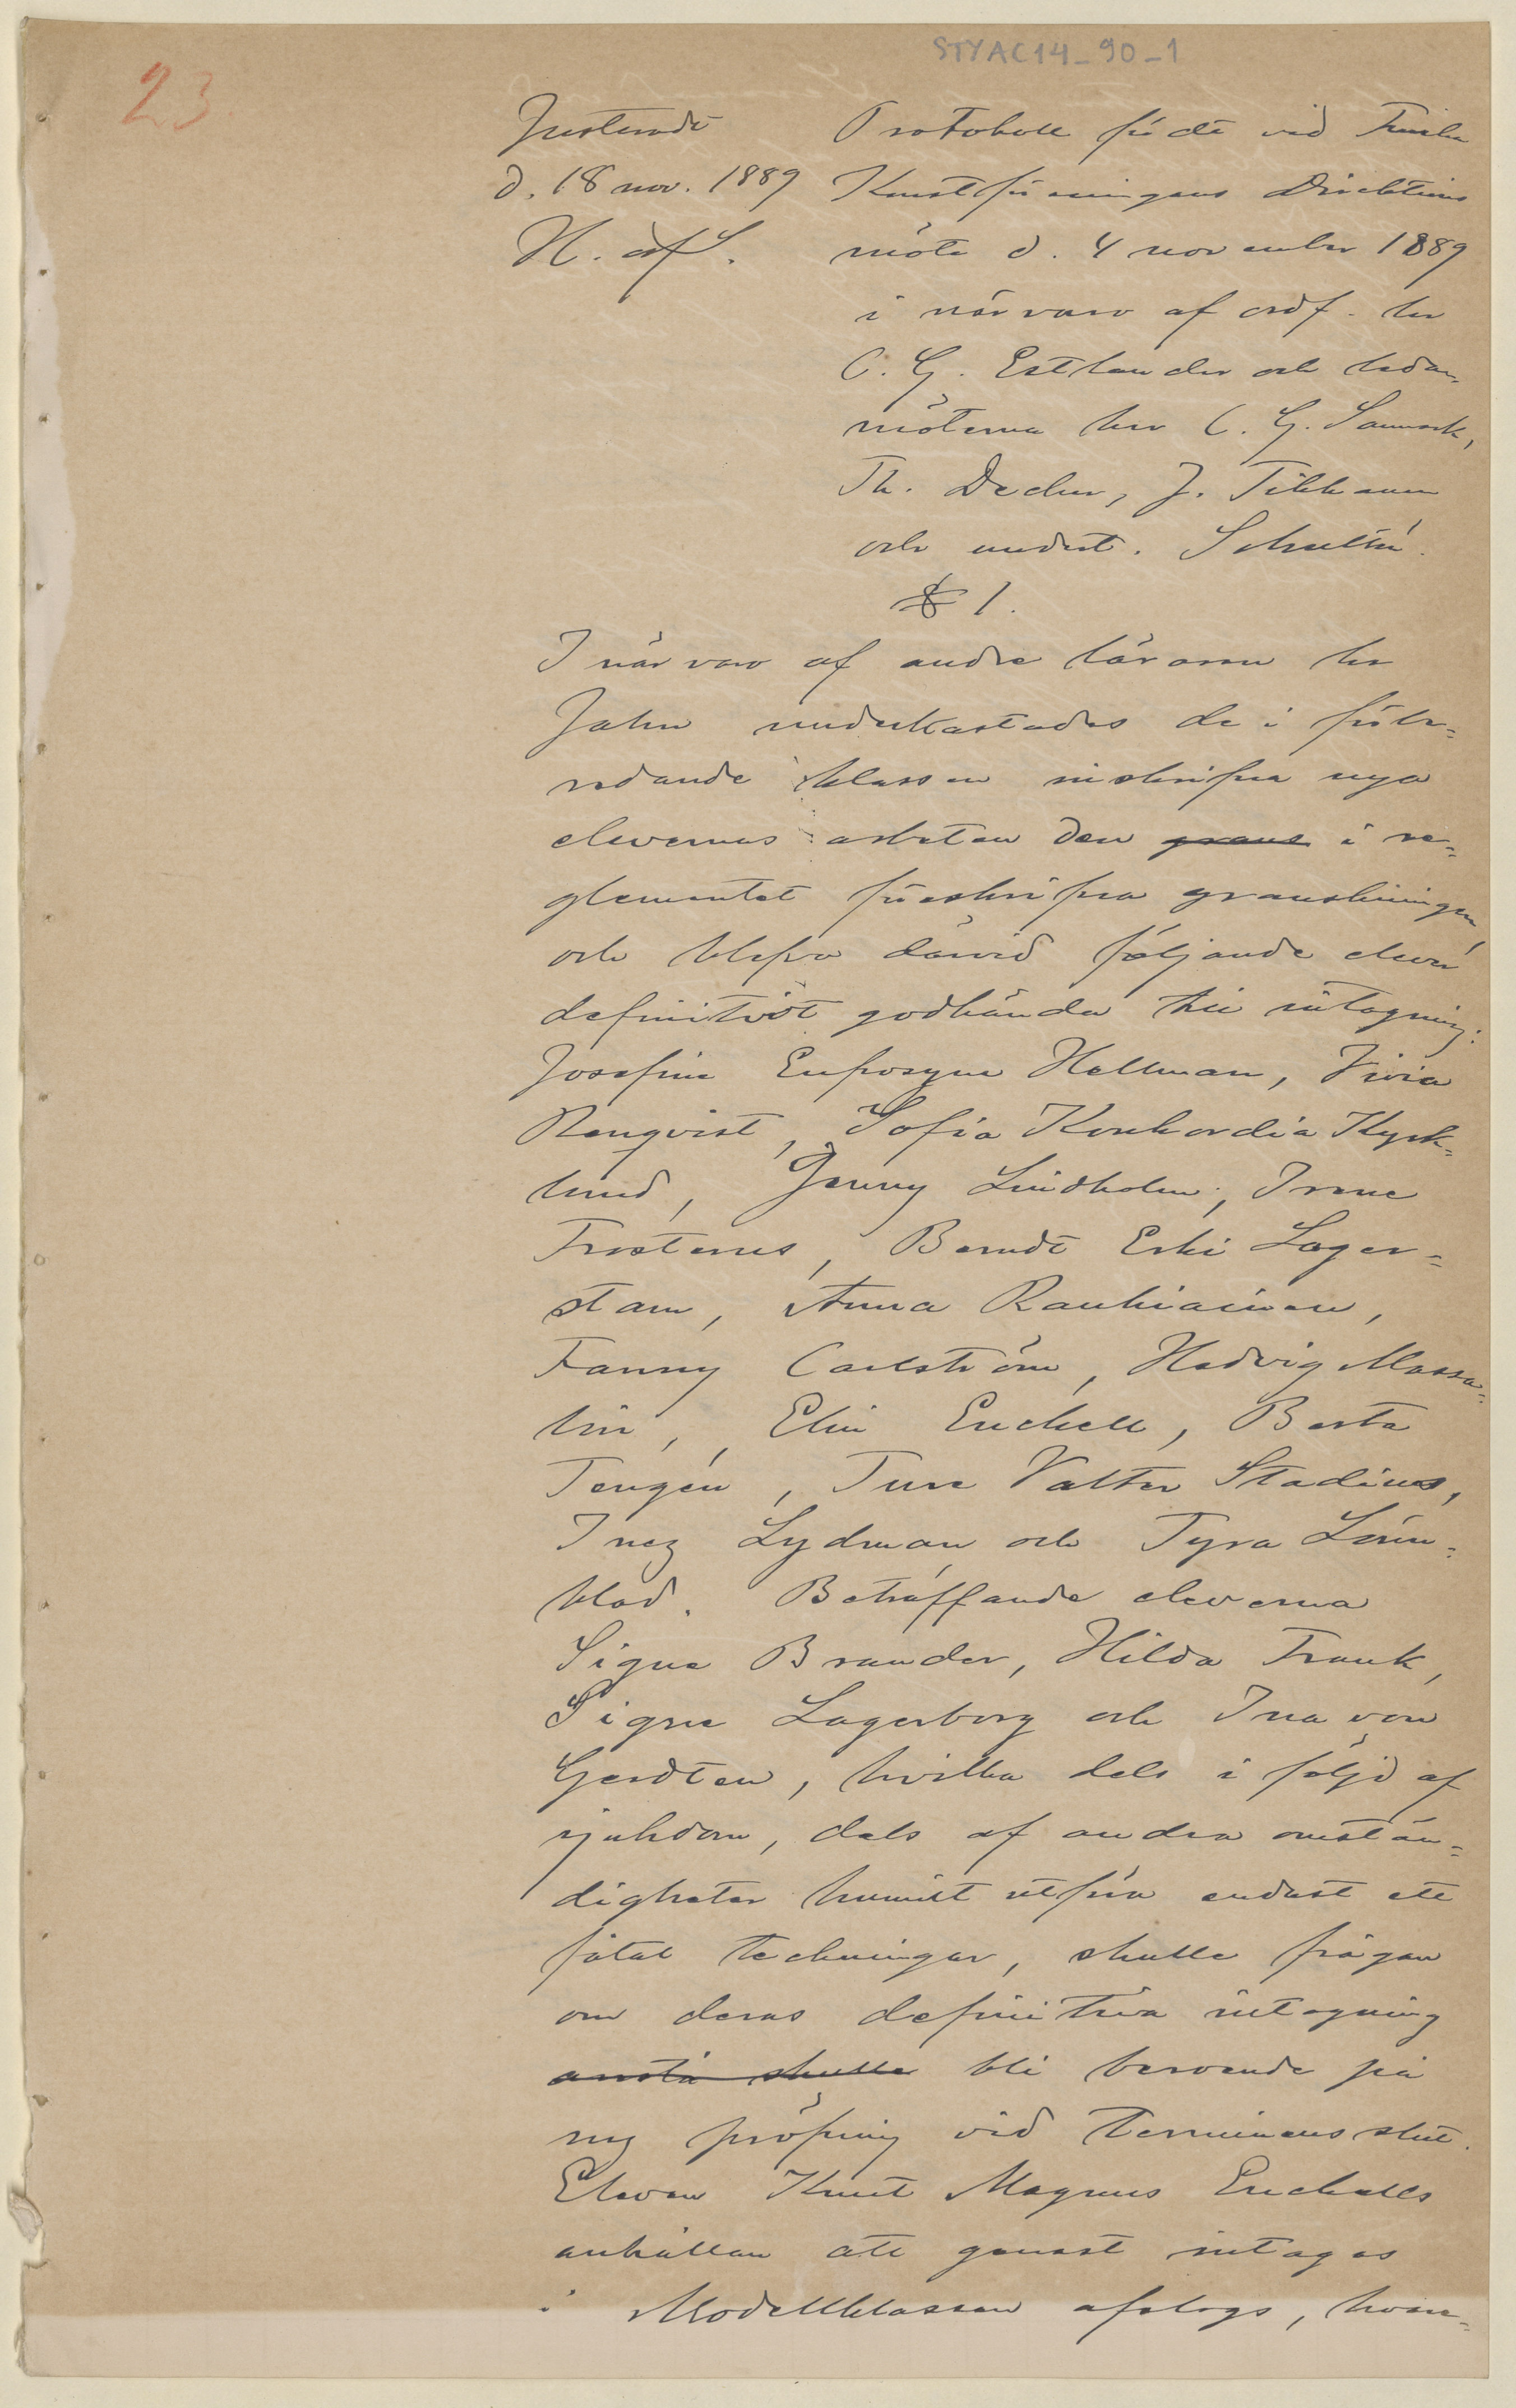 STYAC14_90_1
23.
Justeradt
d. 18 nov. 1889
Protokoll fördt vid Finska
Konstföreningens Direktions
möte d. 4 november 1889
i närvaro af ordf. hr
C. G. Estlander och leda-
möterna hrr C. G. Sanmark,
Th. Decker, J. Tikkanen
och undert. Schultén.
§ 1.
I närvaro af andre läraren hr
Jahn underkastades de i förbe=
redande klassen inskrifna nya
elevernas arbeten den i re=
glementet föreskrifna granskningen
och blefvo därvid följande elever
definitivt godkända till intagning:
Josefine Eufrosyne Hellman, Vivia
Renqvist, Sofia Konkordia Kyrk=
lund, Jenny Lindholm, Irene
Frosterus, Berndt Erki Lager=
stam, Anna Rauhiainen,
Fanny Carlström, Hedvig Massa=
lin, Elin Enckell, Berta
Tengén, Ture Valter Stadius,
Inez Lydman och Tyra Lönn=
blad. Beträffande eleverna
Signe Brander, Hilda Frank,
Signe Lagerborg och Ina von
Gerdten, hvilka dels i följd af
sjukdom, dels af andra omstän=
digheter hunnit utföra endast ett
fåtal teckningar, skulle frågan
om deras definitiva intagning
anstå skulle bli beroende på
ny pröfning vid terminens slut.
Eleven Knut Magnus Enckells
anhållan att genast intagas
i Modellklassen afslogs, hvar=